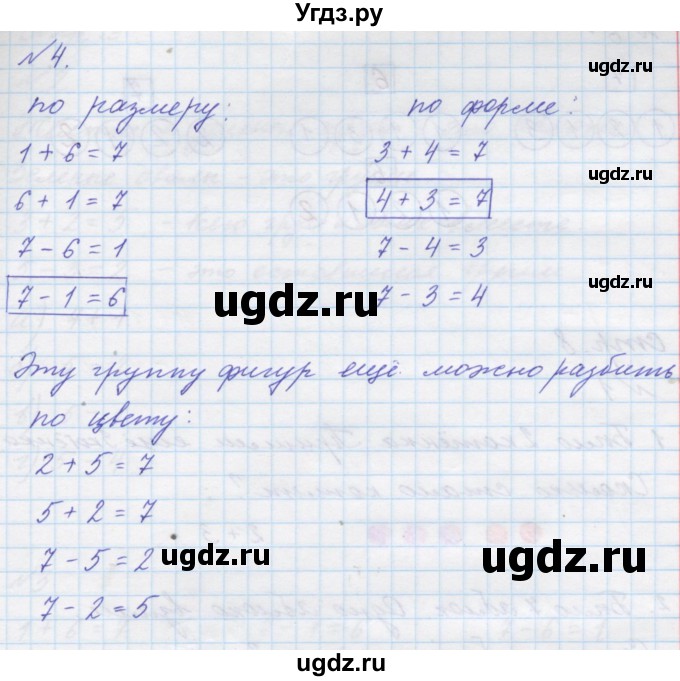 Угдз.ру
№4.
по размеру:
1 + 6 = 7
6 + 1 = 7
7 - 6 = 1
7 - 1 = 6
по форме:
3 + 4 = 7
4 + 3 = 7
7 - 4 = 3
7 - 3 = 4
Эту группу фигур ещё можно разбить
по цвету:
2 + 5 = 7
5 + 2 = 7
7 - 5 = 2
7 - 2 = 5
ugdz.ru
ugdz.ru
ugdz.ru
ugdz.ru
ugdz.ru
ugdz.ru
ugdz.ru
ugdz.ru
ugdz.ru